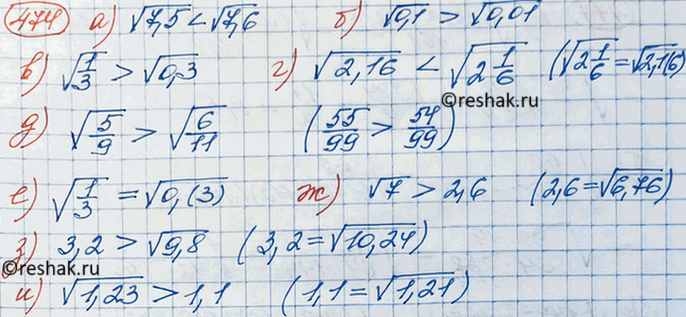 474 а) √7,5 < √7,6 б) √0,1 > √0,01
в) √1/3 > √0,3 г) √2,16 < √2 1/6 (√2 1/6 = √2,1(6))
©reshak.ru
д) √5/9 > √6/11 (55/99 > 54/99)
е) √1/3 = √0,(3) ж) √7 > 2,6 (2,6 = √6,76)
з) 3,2 > √9,8 (3,2 = √10,24)
©reshak.ru
и) √1,23 > 1,1 (1,1 = √1,21)